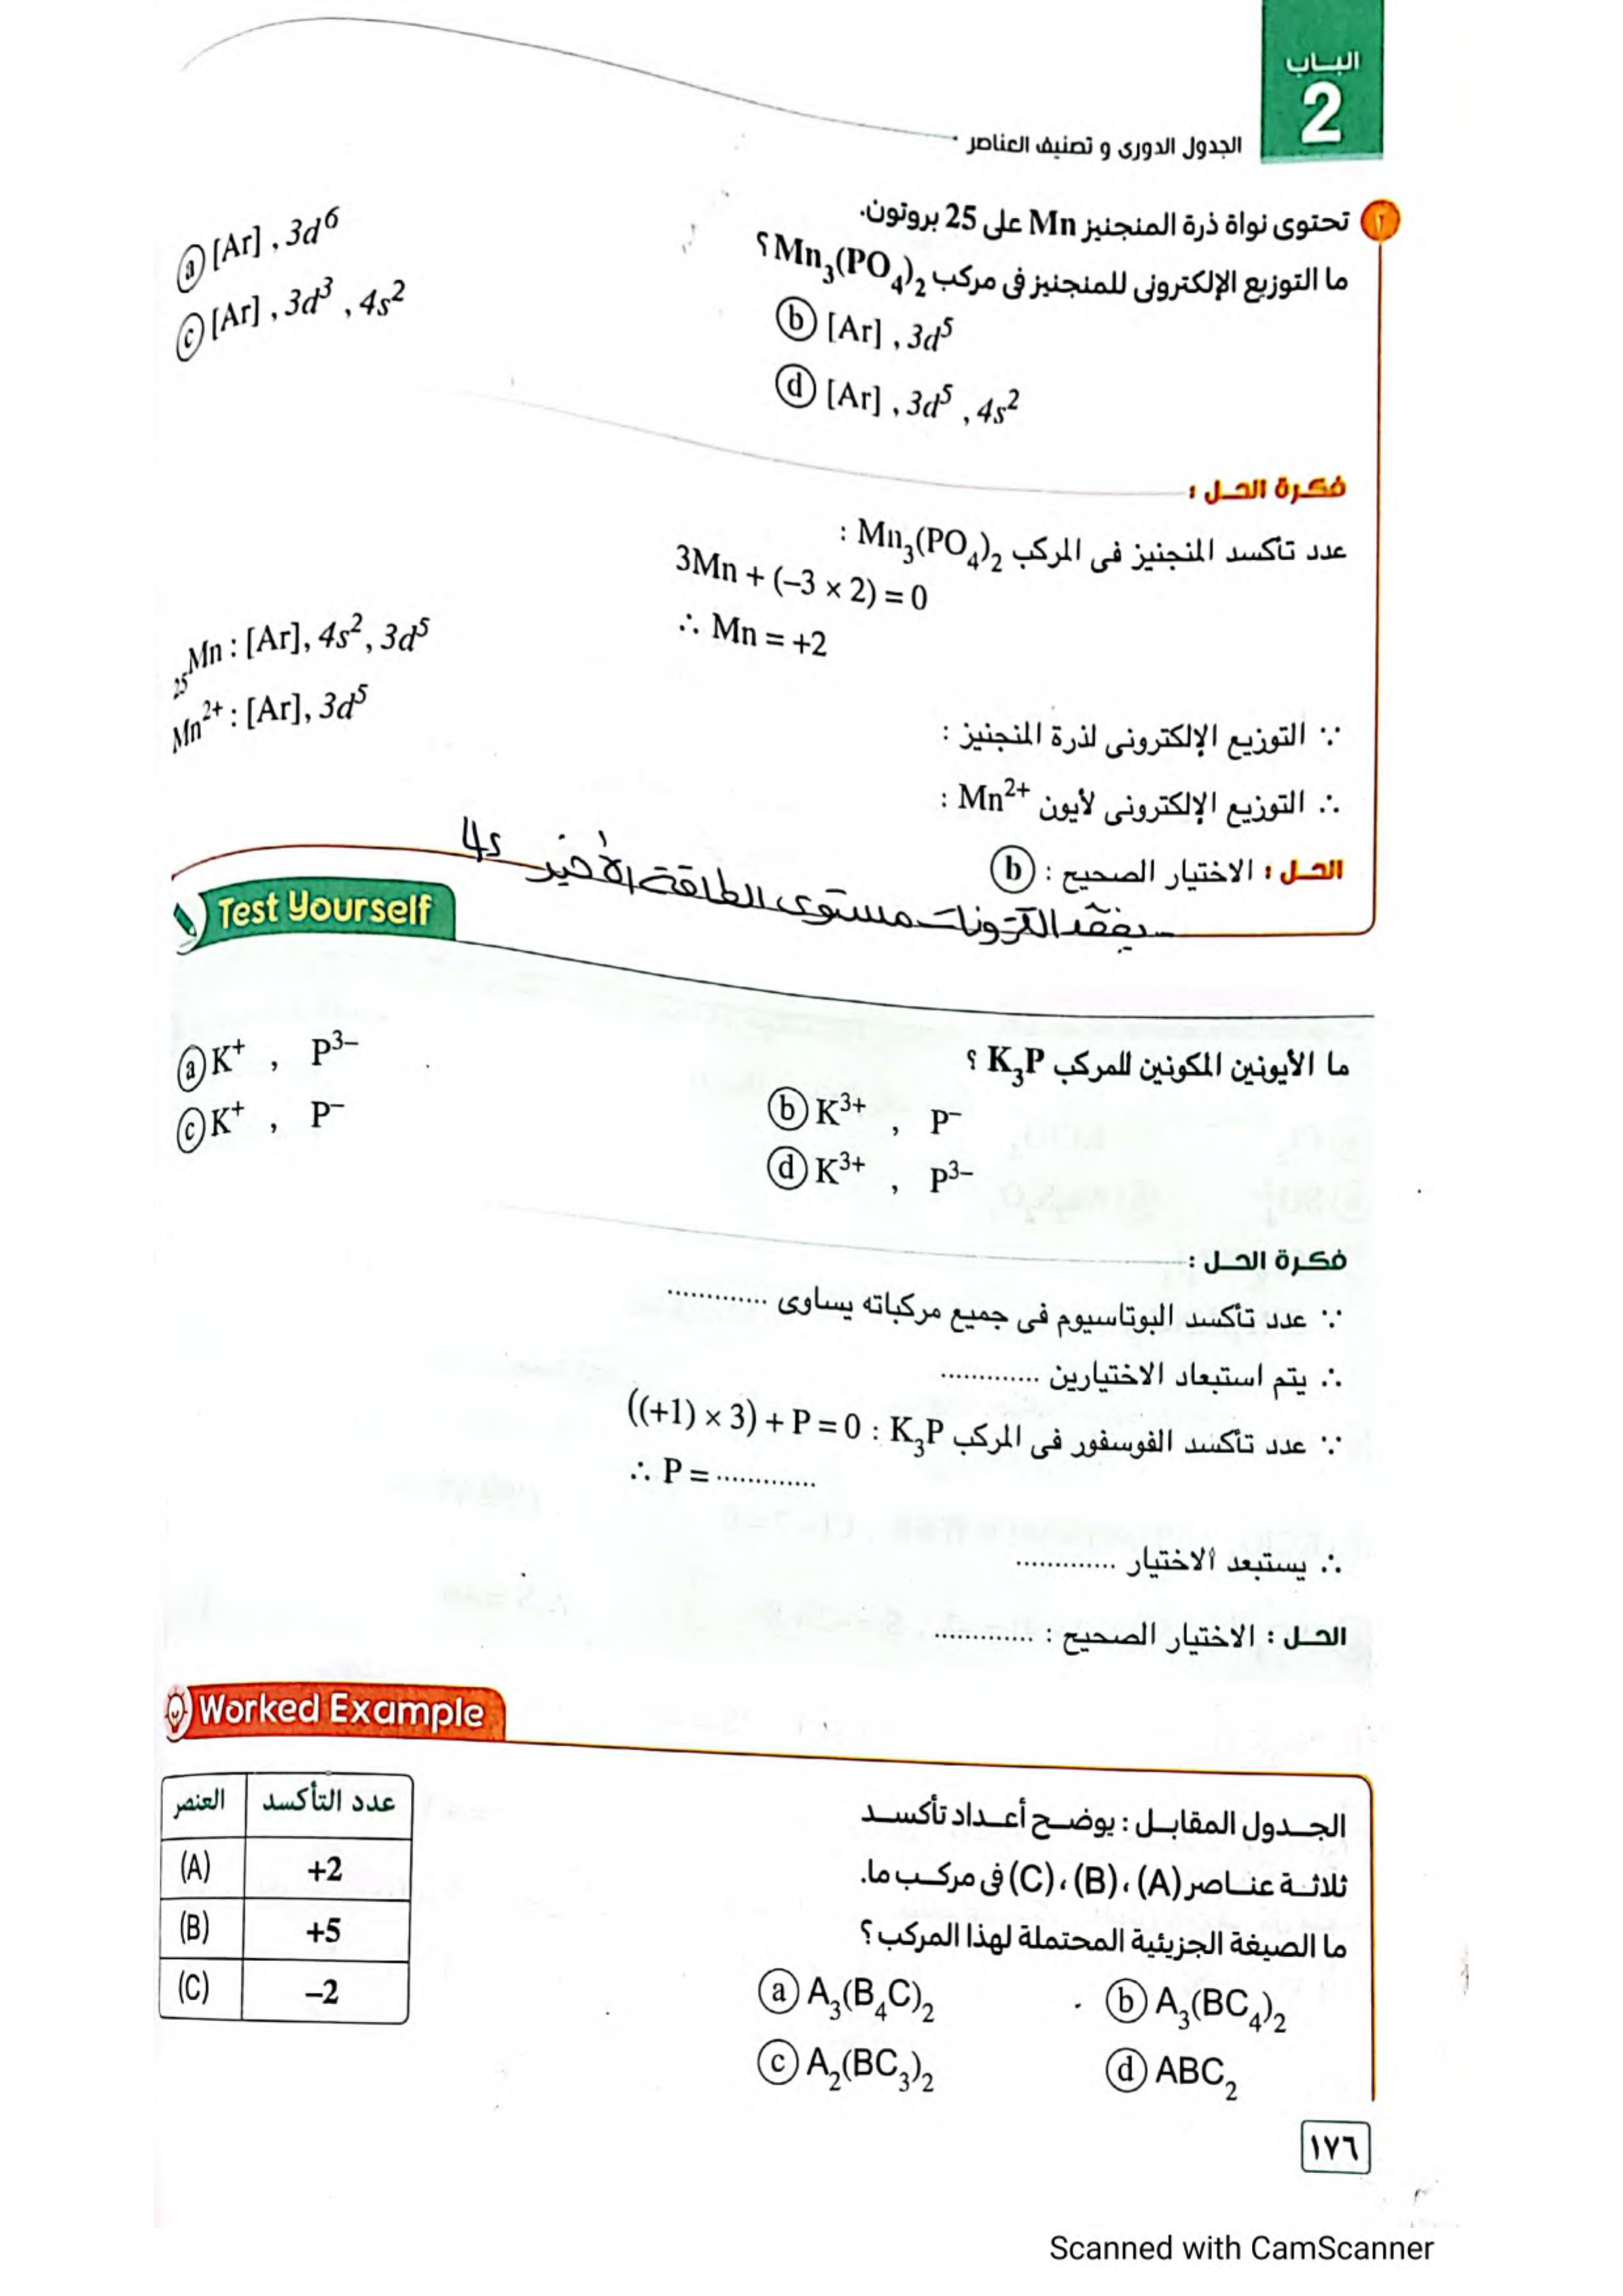 الباب
2
الجدول الدورى و تصنيف العناصر
١ تحتوى نواة ذرة المنجنيز Mn على 25 بروتون.
ما التوزيع الإلكترونى للمنجنيز فى مركب Mn₃(PO₄)₂ ؟
ⓐ [Ar] , 3d⁶
ⓑ [Ar] , 3d⁵
ⓒ [Ar] , 3d³ , 4s²
ⓓ [Ar] , 3d⁵ , 4s²
فكرة الحـل :
عدد تأكسد المنجنيز فى المركب Mn₃(PO₄)₂ :
3Mn + (–3 × 2) = 0
∴ Mn = +2
∵ التوزيع الإلكترونى لذرة المنجنيز :
₂₅Mn : [Ar], 4s², 3d⁵
∴ التوزيع الإلكترونى لأيون Mn²⁺ :
Mn²⁺ : [Ar], 3d⁵
الحـل : الاختيار الصحيح : ⓑ
- يفقد الكترونات مستوى الطاقة الأخير 4s
Test Yourself
ما الأيونين المكونين للمركب K₃P ؟
ⓐ K⁺ , P³⁻
ⓑ K³⁺ , P⁻
ⓒ K⁺ , P⁻
ⓓ K³⁺ , P³⁻
فكرة الحـل :
∵ عدد تأكسد البوتاسيوم فى جميع مركباته يساوى .............
∴ يتم استبعاد الاختيارين .............
∵ عدد تأكسد الفوسفور فى المركب K₃P : ((+1) × 3) + P = 0
∴ P = .............
∴ يستبعد الاختيار .............
الحـل : الاختيار الصحيح : .............
Worked Example
الجـدول المقابـل : يوضـح أعـداد تأكسـد
ثلاثـة عنـاصر (A) ، (B) ، (C) فى مركـب ما.
ما الصيغة الجزيئية المحتملة لهذا المركب ؟
العنصر عدد التأكسد
(A) +2
(B) +5
(C) –2
ⓐ A₃(B₄C)₂ ⓑ A₃(BC₄)₂
ⓒ A₂(BC₃)₂ ⓓ ABC₂
١٧٦
Scanned with CamScanner